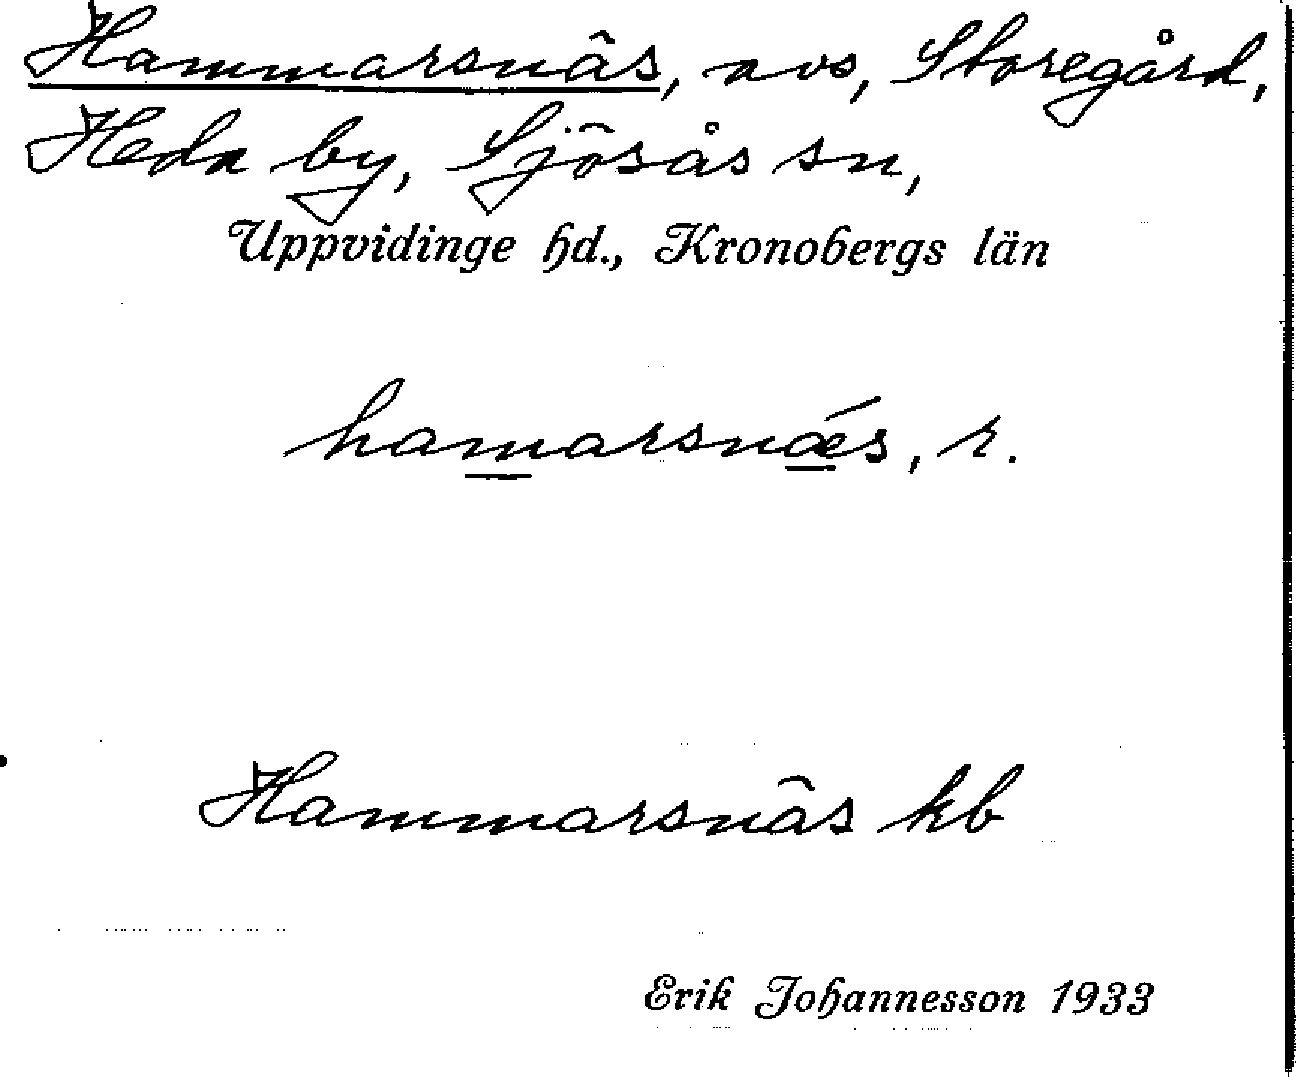 Hammarsnäs, avs, Storegård,
Heda by, Sjösås sn,
Uppvidinge hd., Kronobergs län
hamarsnǽs, r.
Hammarsnäs kb
Erik Johannesson 1933